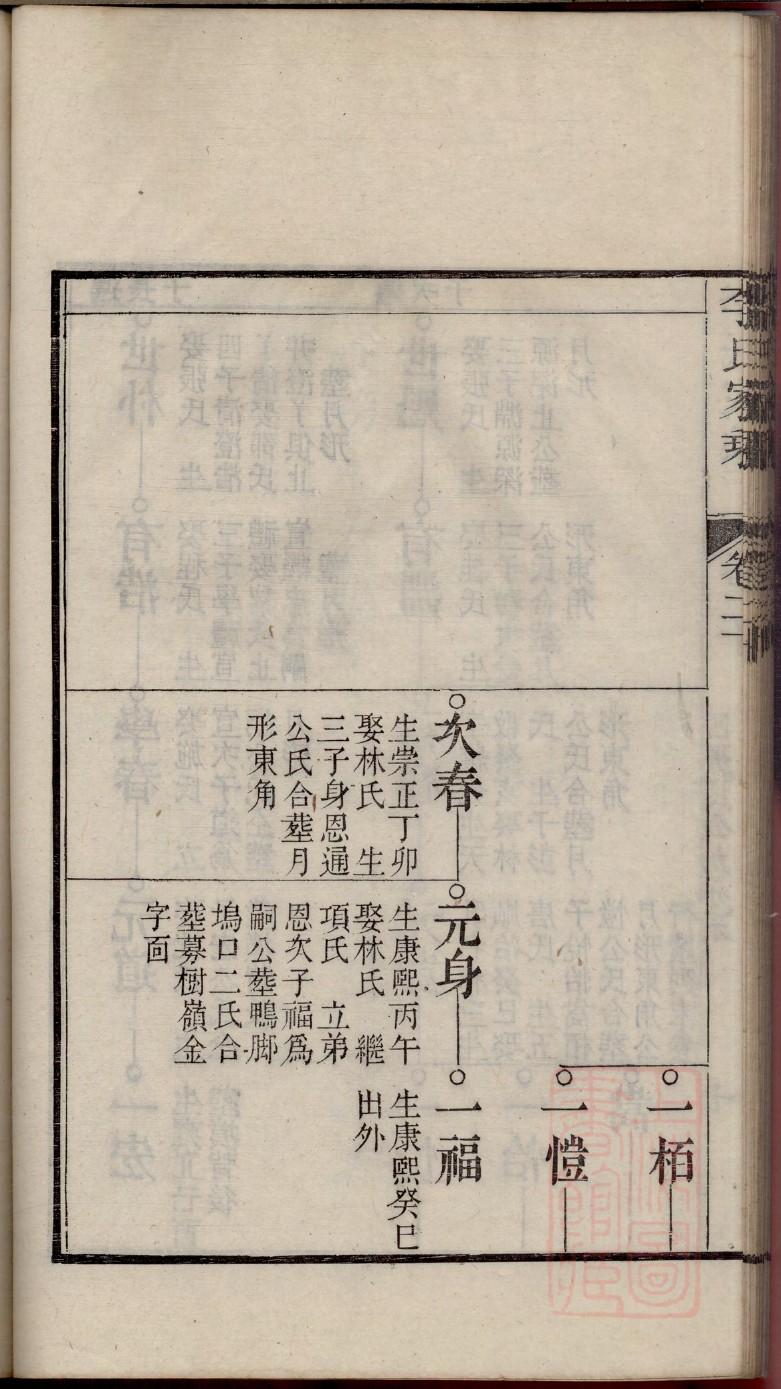 李氏家乘
卷二
一栢
一愷
次春
生崇正丁卯
娶林氏 生
三子身恩通
公氏合塟月
形東角
元身
生康熙丙午
娶林氏 繼
項氏 立弟
恩次子福爲
嗣公塟鴨脚
塢口二氏合
塟募樹嶺金
字面
一福
生康熙癸巳
出外